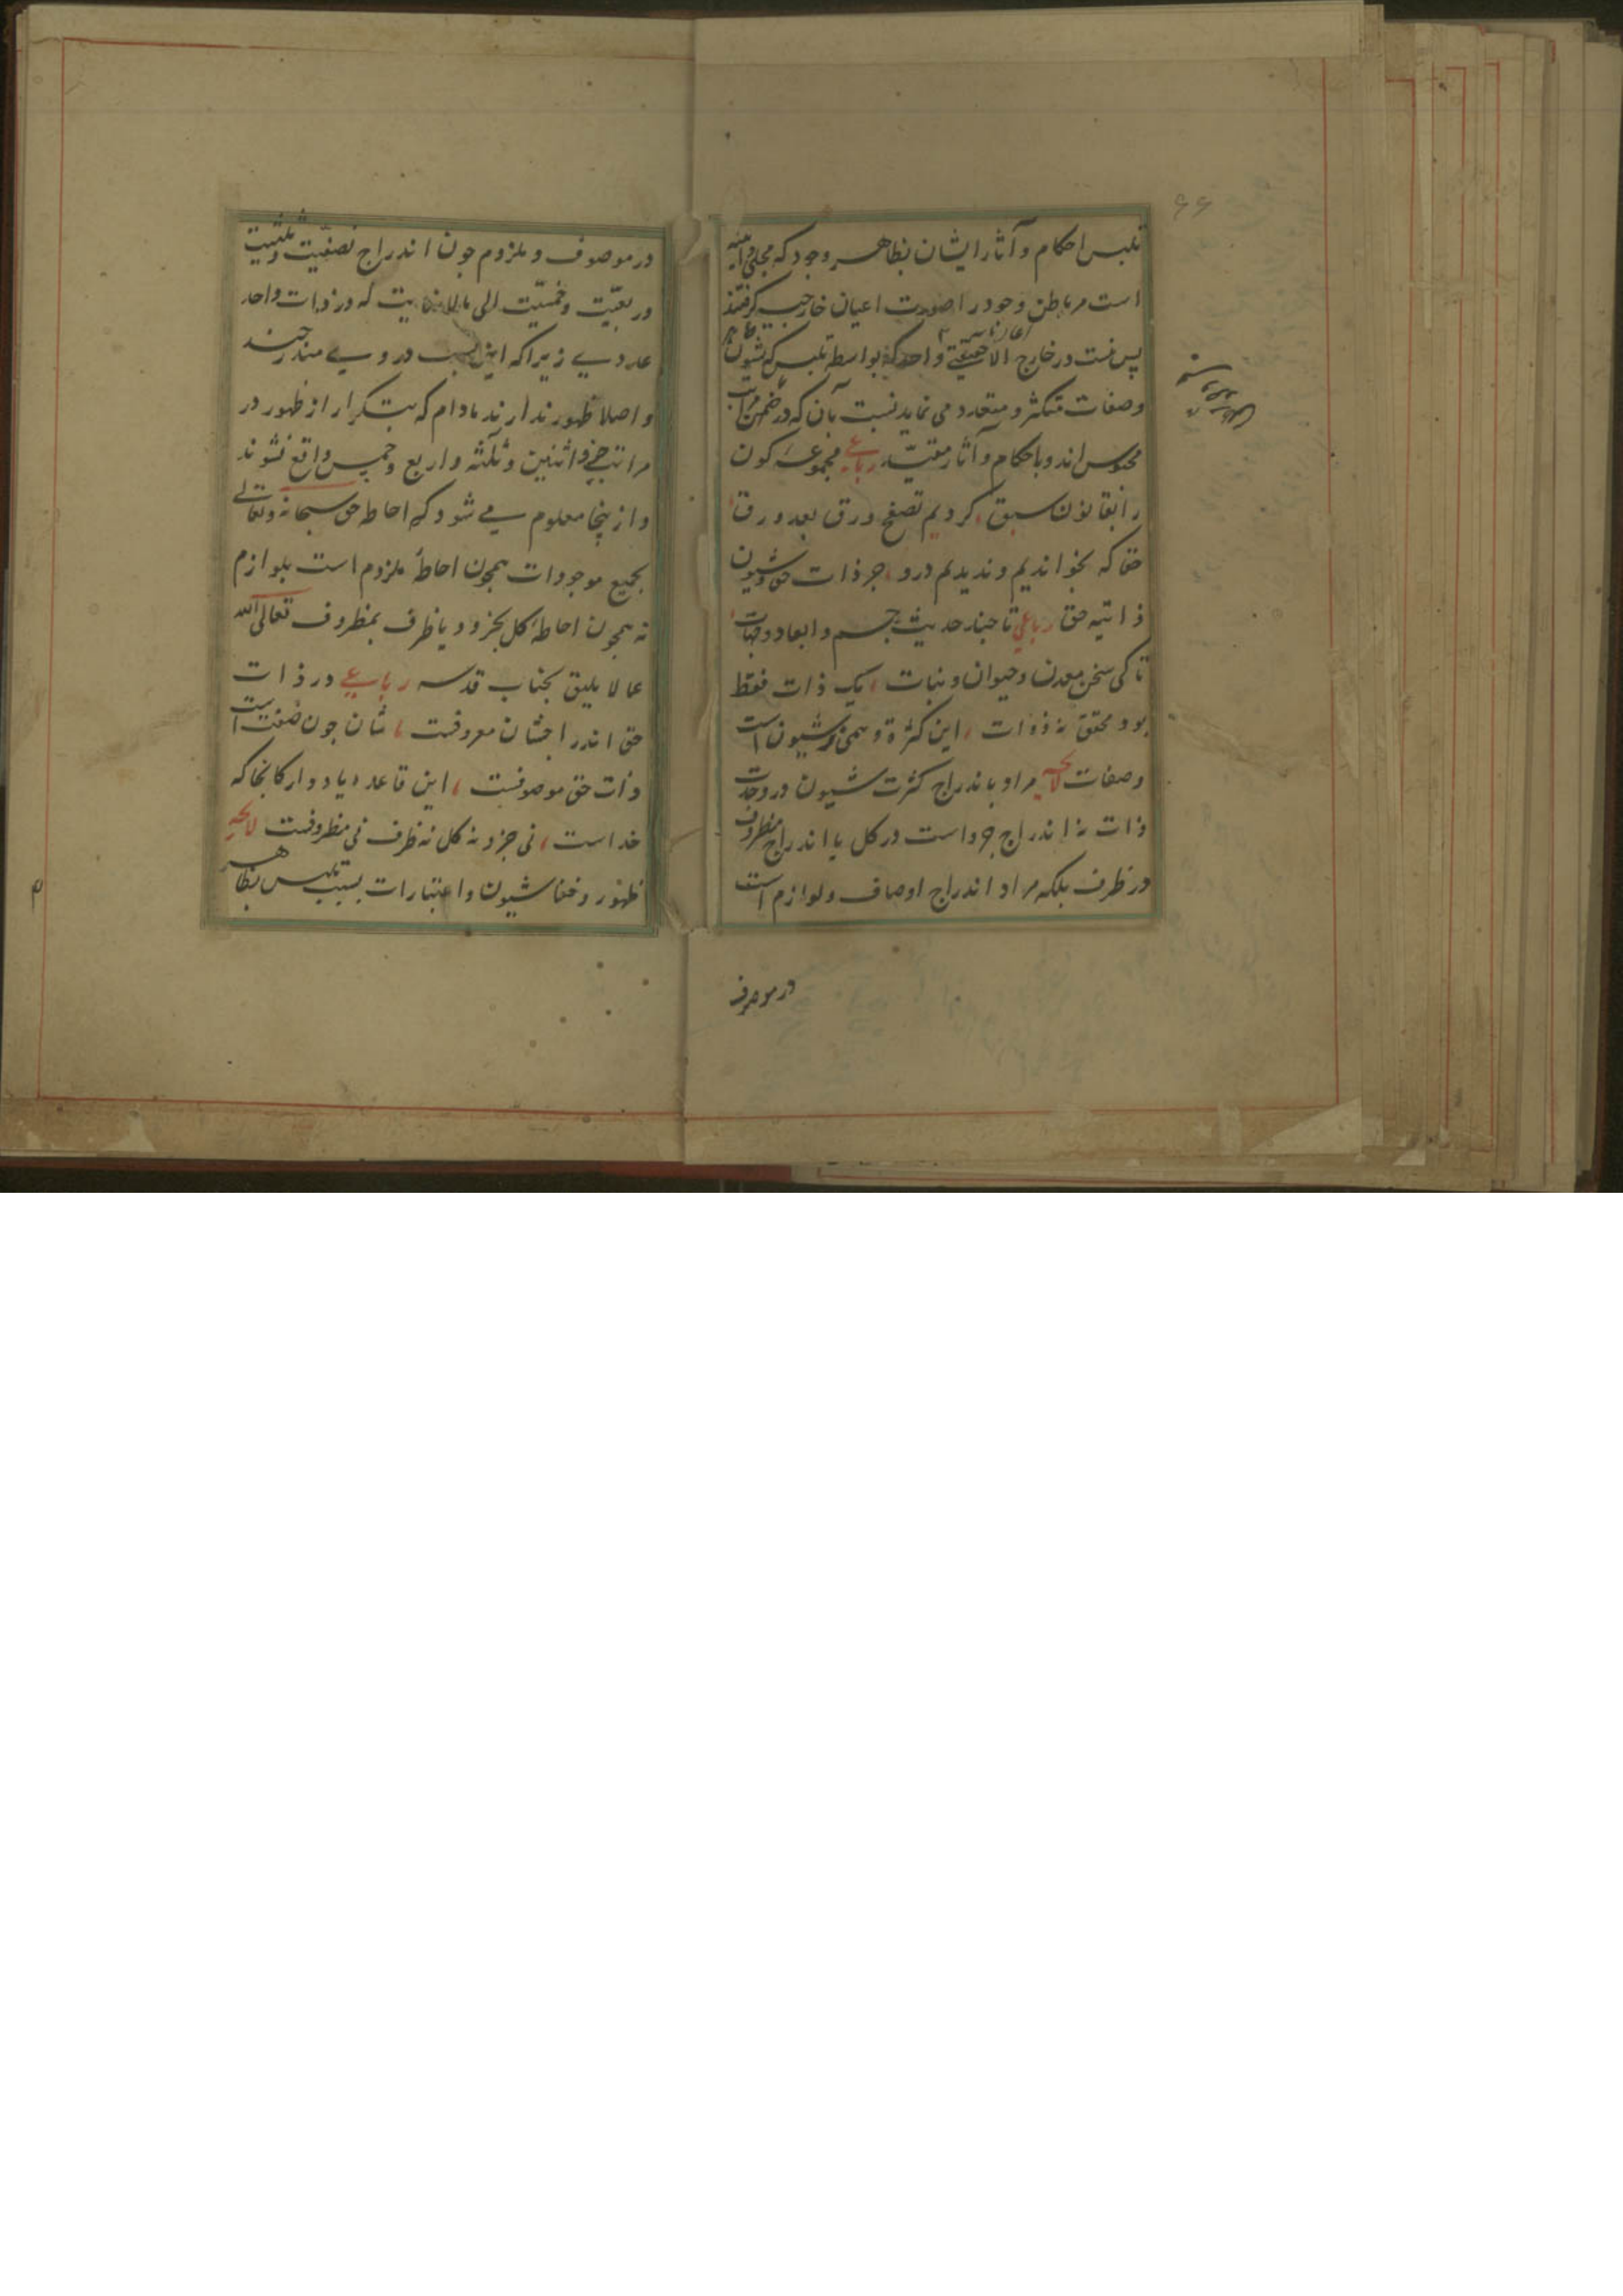 ۶۶
تلبس احکام و آثار ایشان بظاهر وجود که مجلی و آینه
است مر باطن وجود را صورت اعیان خارجیه گرفتند
پس نیست در خارج الا حقیقتی واحد که بواسطه تلبس که شیون
وصفات متکثر و متعدد می نماید نسبت بآن که در ضمن مراتب
محبوس اند و باحکام و آثار مقید رباعی مجموعه کون
را بقانون سبق، کردیم تصفح ورق بعد ورق
حقا که نخواندیم و ندیدیم درو، جز ذات حق و شیون
ذاتیه حق رباعی تا چند حدیث جسم و ابعاد و جهات
تا کی سخن معدن و حیوان و نبات، یک ذات فقط
بود محقق نه ذوات، این کثرة وهمی ز شیون است
وصفات لایحه مراد باندراج کثرت شیون در وحدت
ذات نه اندراج جزو است در کل یا اندراج مظروف
در ظرف بلکه مراد اندراج اوصاف و لوازم است
در موصوف
در موصوف و ملزوم جون اندراج نصفیت و ثلثیت
و ربعیت و خمسیت الی مالا نهایت که در ذات واحد
عددی زیرا که این نسب در وی مندرجند
و اصلا ظهور ندارند مادام که بتکرار از ظهور در
مراتب جزو اثنین و ثلثه و اربع و خمس واقع نشوند
و از ینجا معلوم می شود که احاطه حق سبحانه و تعالی
بجمیع موجودات همجون احاطهٔ ملزوم است بلوازم
نه همجون احاطهٔ کل بجزو و یا ظرف بمظروف تعالی الله
عما لا یلیق بجناب قدسه رباعی در ذات
حق اندراج شان معروفست، شان جون صفت است
ذات حق موصوفست، این قاعده یاد دار کانجا که
خداست، نی جزو نه کل نه ظرف نی مظروفست لایحه
ظهور و خفا شیون و اعتبارات بسبب تلبس بظاهر